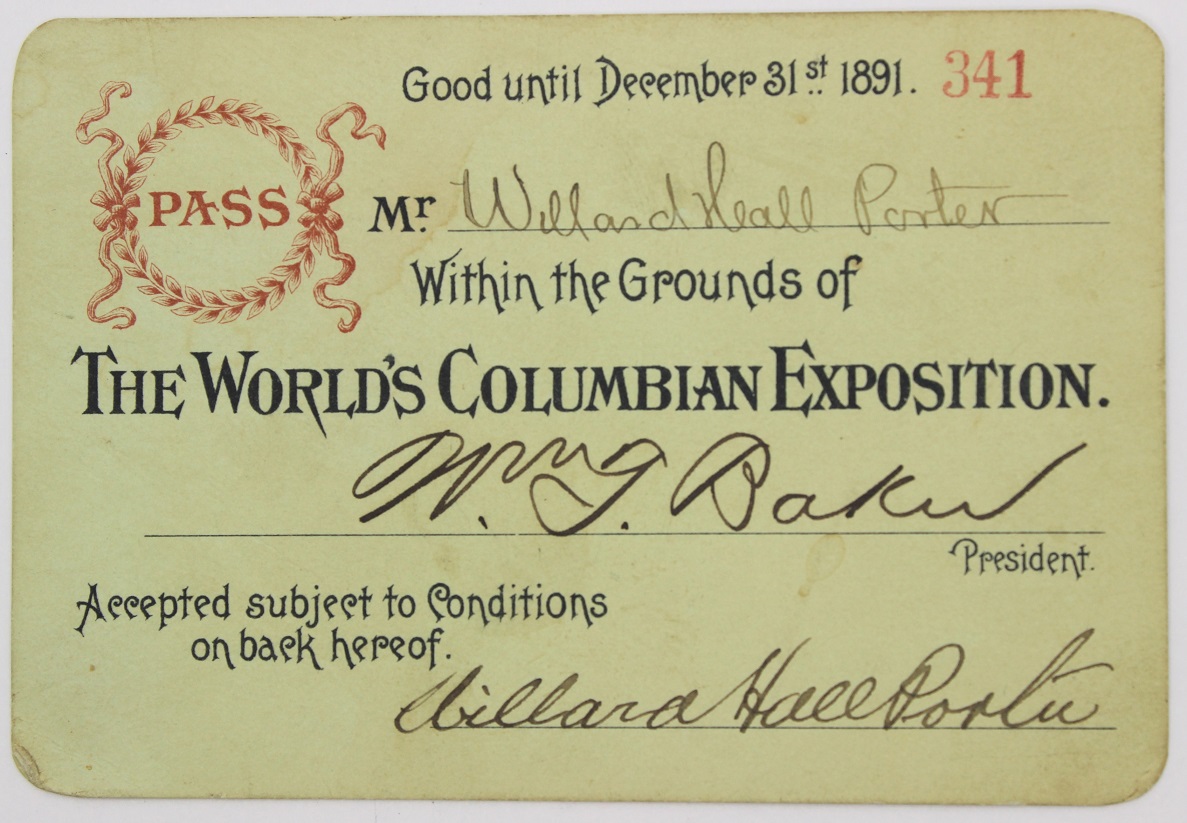 Good until December 31st 1891. 341
PASS
Mr. Willard Hall Porter
Within the Grounds of
THE WORLD'S COLUMBIAN EXPOSITION.
Wm. T. Baker
President.
Accepted subject to Conditions
on back hereof.
Willard Hall Porter